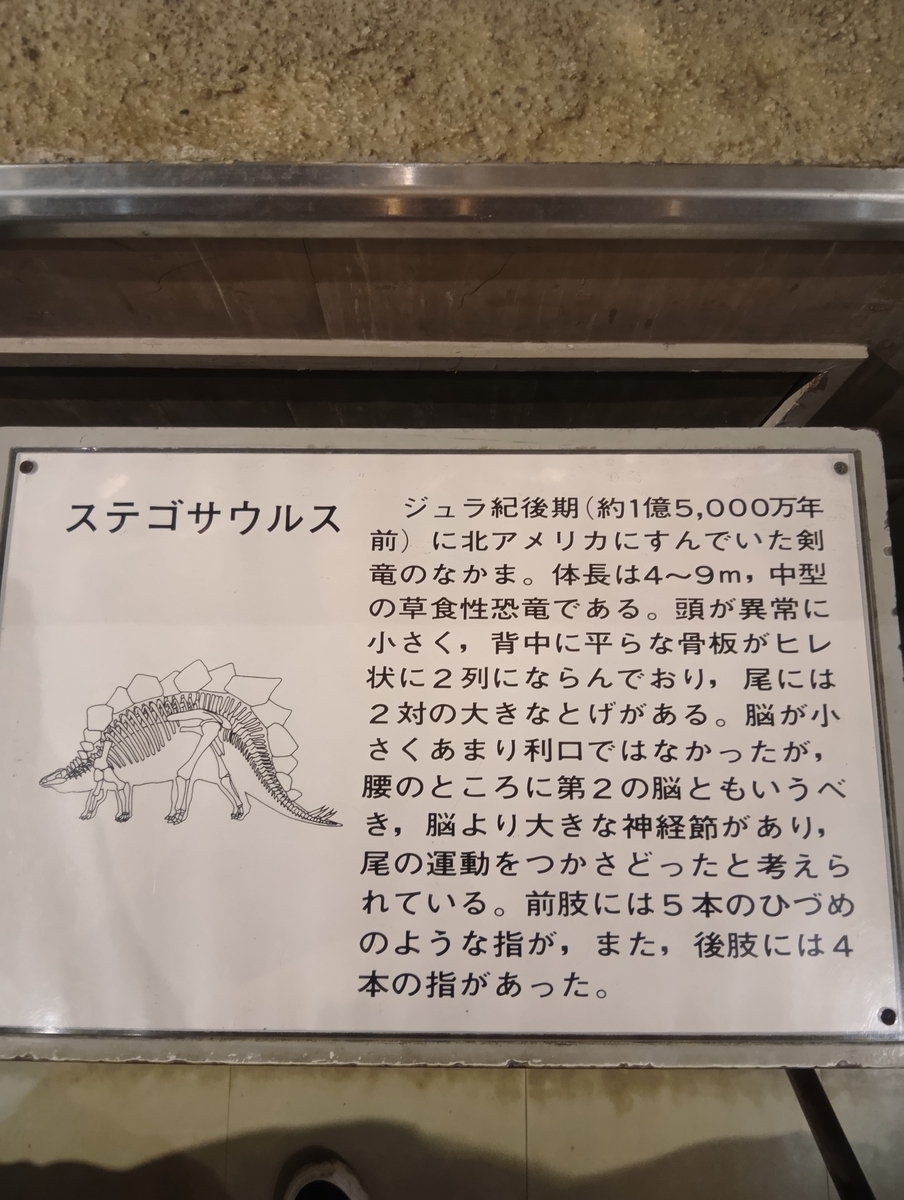 ステゴサウルス
ジュラ紀後期(約1億5,000万年
前)に北アメリカにすんでいた剣
竜のなかま。体長は4〜9m，中型
の草食性恐竜である。頭が異常に
小さく，背中に平らな骨板がヒレ
状に2列にならんでおり，尾には
2対の大きなとげがある。脳が小
さくあまり利口ではなかったが，
腰のところに第2の脳ともいうべ
き，脳より大きな神経節があり，
尾の運動をつかさどったと考えら
れている。前肢には5本のひづめ
のような指が，また，後肢には4
本の指があった。